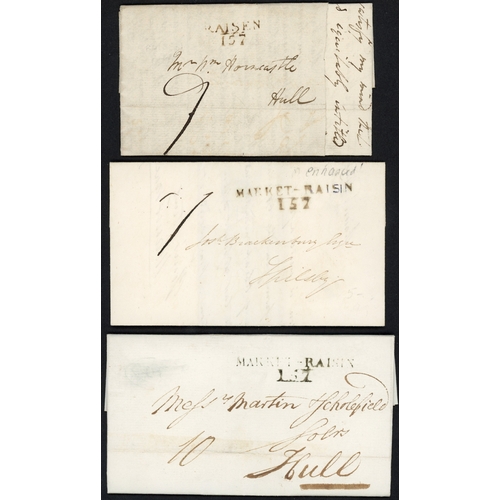 RAISEN
157
Mr Wm Horncastle
Hull
9
satisfy my mind the
equitably
"enhanced"
MARKET-RAISIN
157
7
Josh Brackenbury Esqr
Spilsby
MARKET-RAISIN
157
Messrs Martin & Scholefield
Solrs
10
Hull